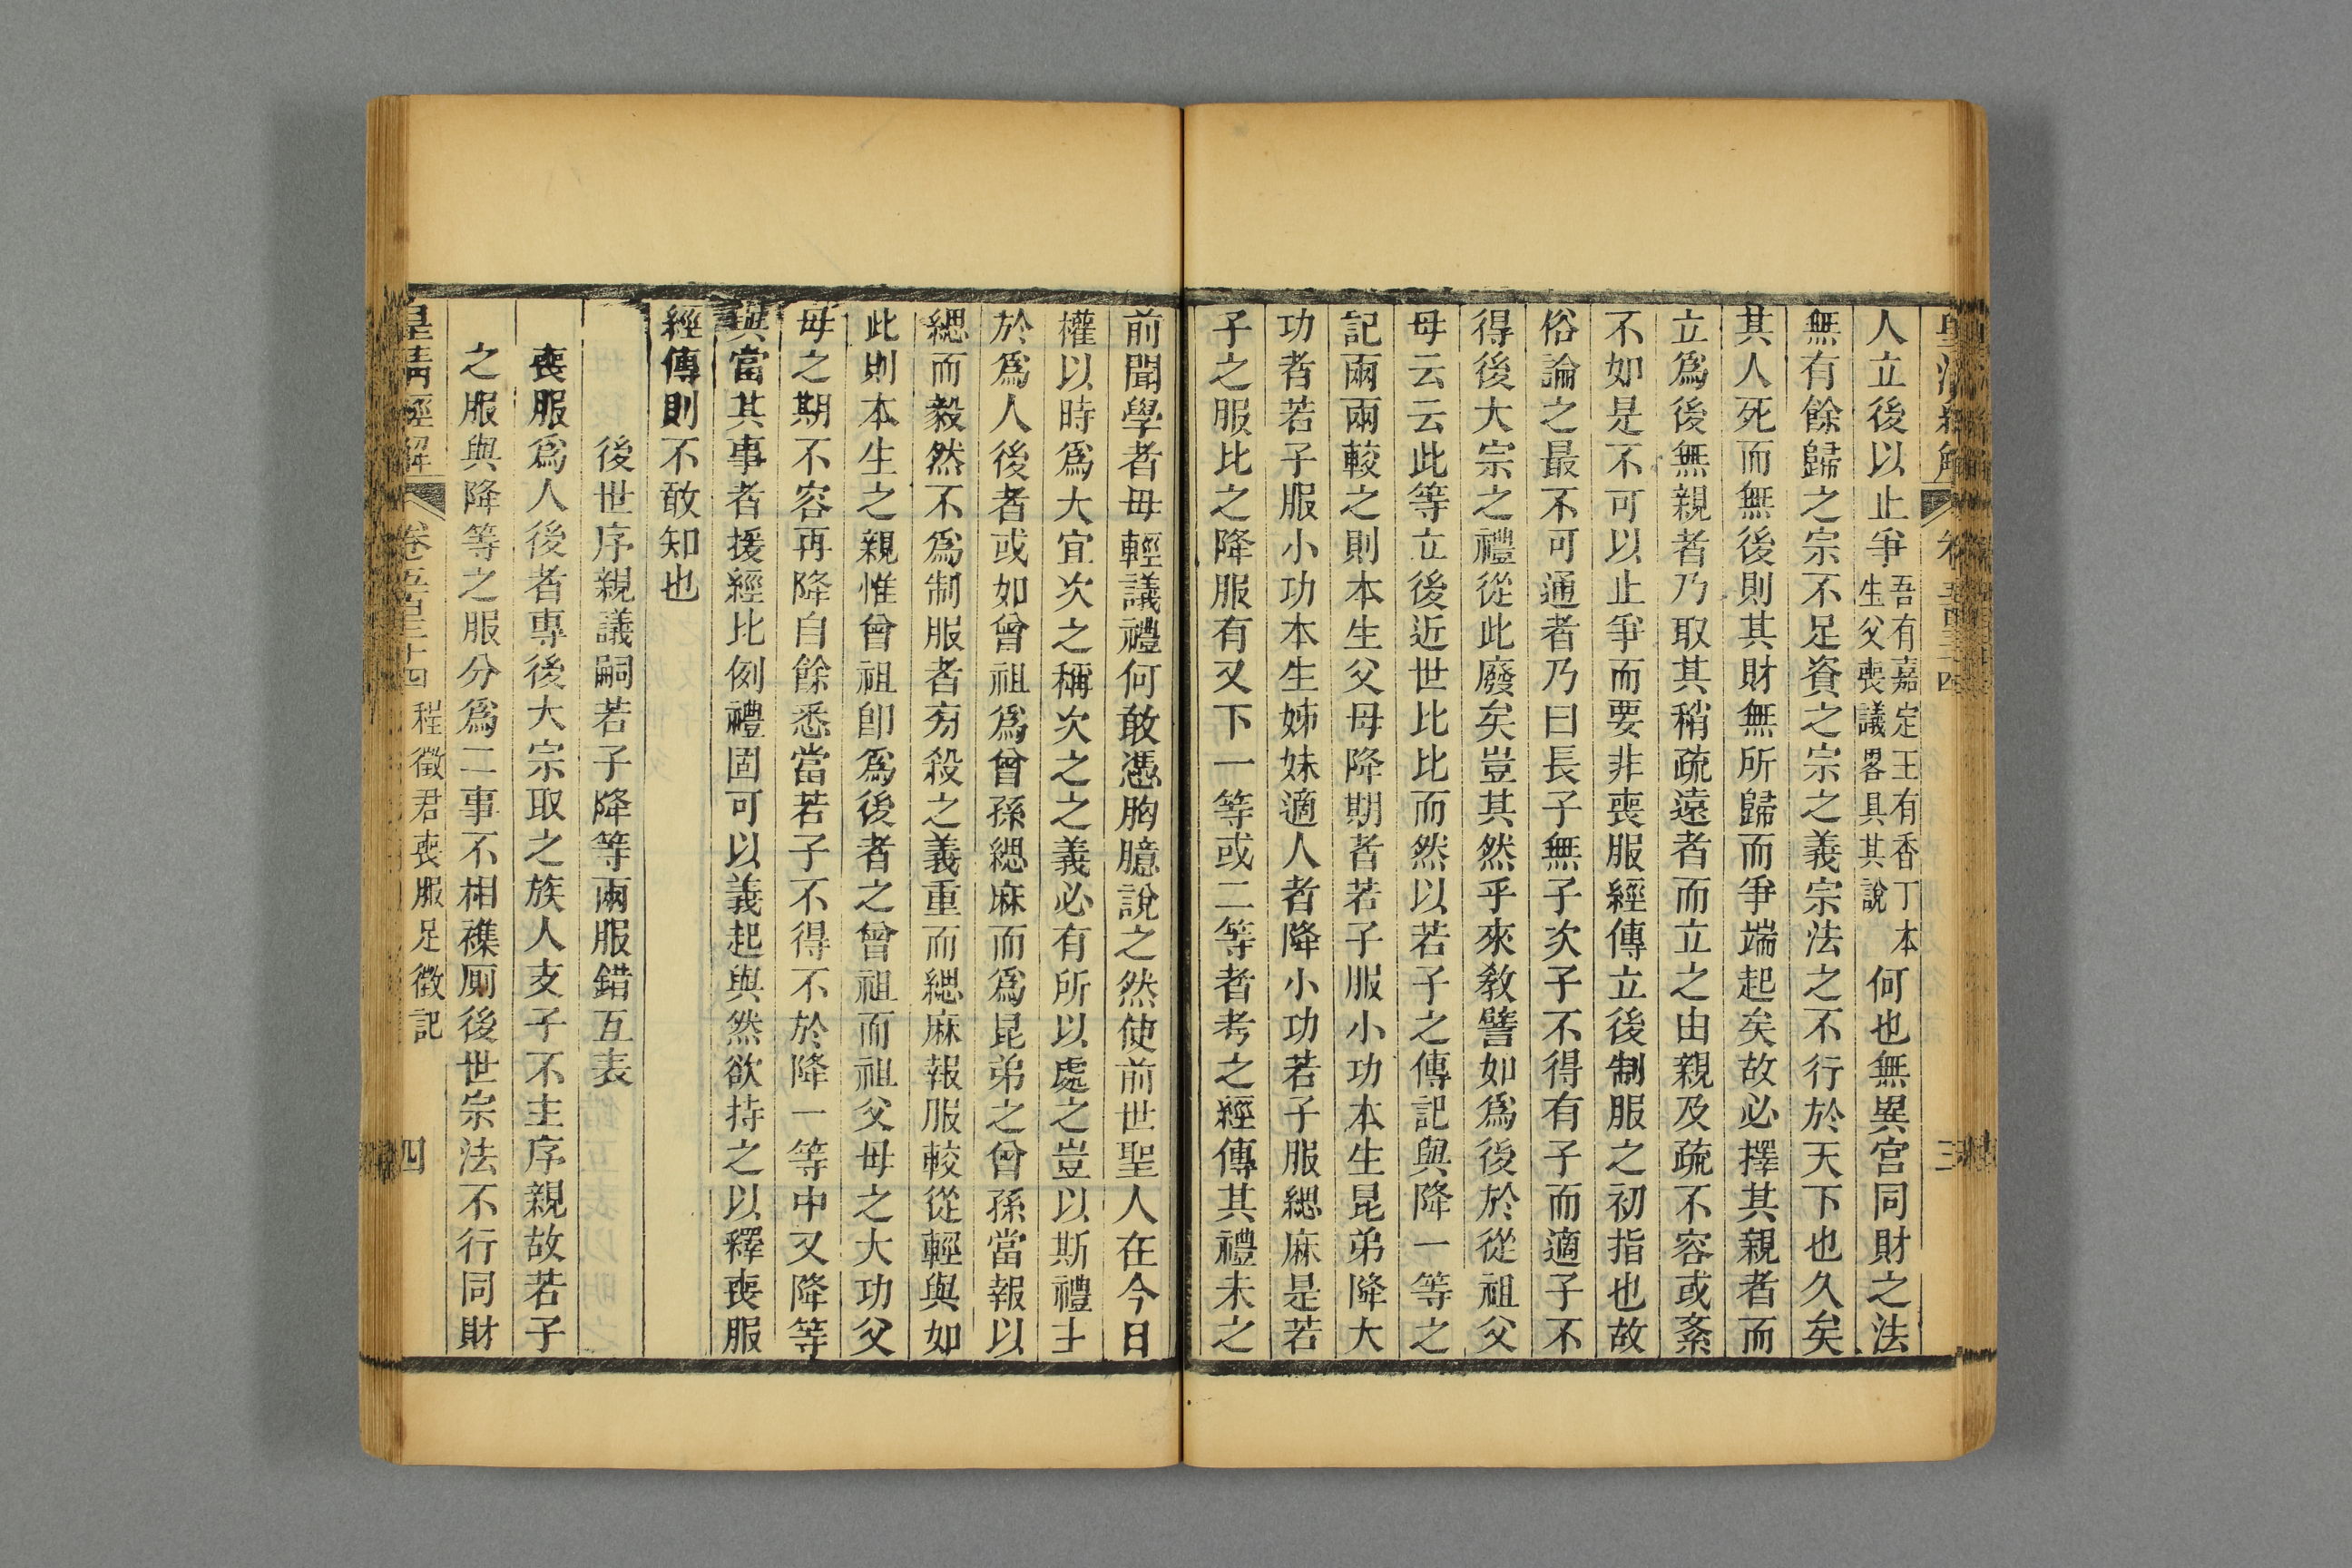 人立後以止爭吾有嘉定王有香丁本生父喪議畧具其說何也無異宮同財之法
無有餘歸之宗不足資之宗之義宗法之不行於天下也久矣
其人死而無後則其財無所歸而爭端起矣故必擇其親者而
立爲後無親者乃取其稍疏遠者而立之由親及疏不容或紊
不如是不可以止爭而要非喪服經傳立後制服之初指也故
俗論之最不可通者乃曰長子無子次子不得有子而適子不
得後大宗之禮從此廢矣豈其然乎來教譬如爲後於從祖父
母云云此等立後近世比比而然以若子之傳記與降一等之
記兩兩較之則本生父母降期者若子服小功本生昆弟降大
功者若子服小功本生姊妹適人者降小功若子服緦麻是若
子之服比之降服有又下一等或二等者考之經傳其禮未之
前聞學者毋輕議禮何敢憑胸臆說之然使前世聖人在今日
權以時爲大宜次之稱次之之義必有所以處之豈以斯禮士
於爲人後者或如曾祖爲曾孫緦麻而爲昆弟之曾孫當報以
緦而毅然不爲制服者夯殺之義重而緦麻報服較從輕與如
此則本生之親惟曾祖卽爲後者之曾祖而祖父母之大功父
母之期不容再降自餘悉當若子不得不於降一等中又降等
與當其事者援經比例禮固可以義起與然欲持之以釋喪服
經傳則不敢知也
後世序親議嗣若子降等兩服錯互表
喪服爲人後者專後大宗取之族人支子不主序親故若子
之服與降等之服分爲二事不相襍厠後世宗法不行同財
皇清經解 卷五百三十四 程徵君喪服足徵記 四